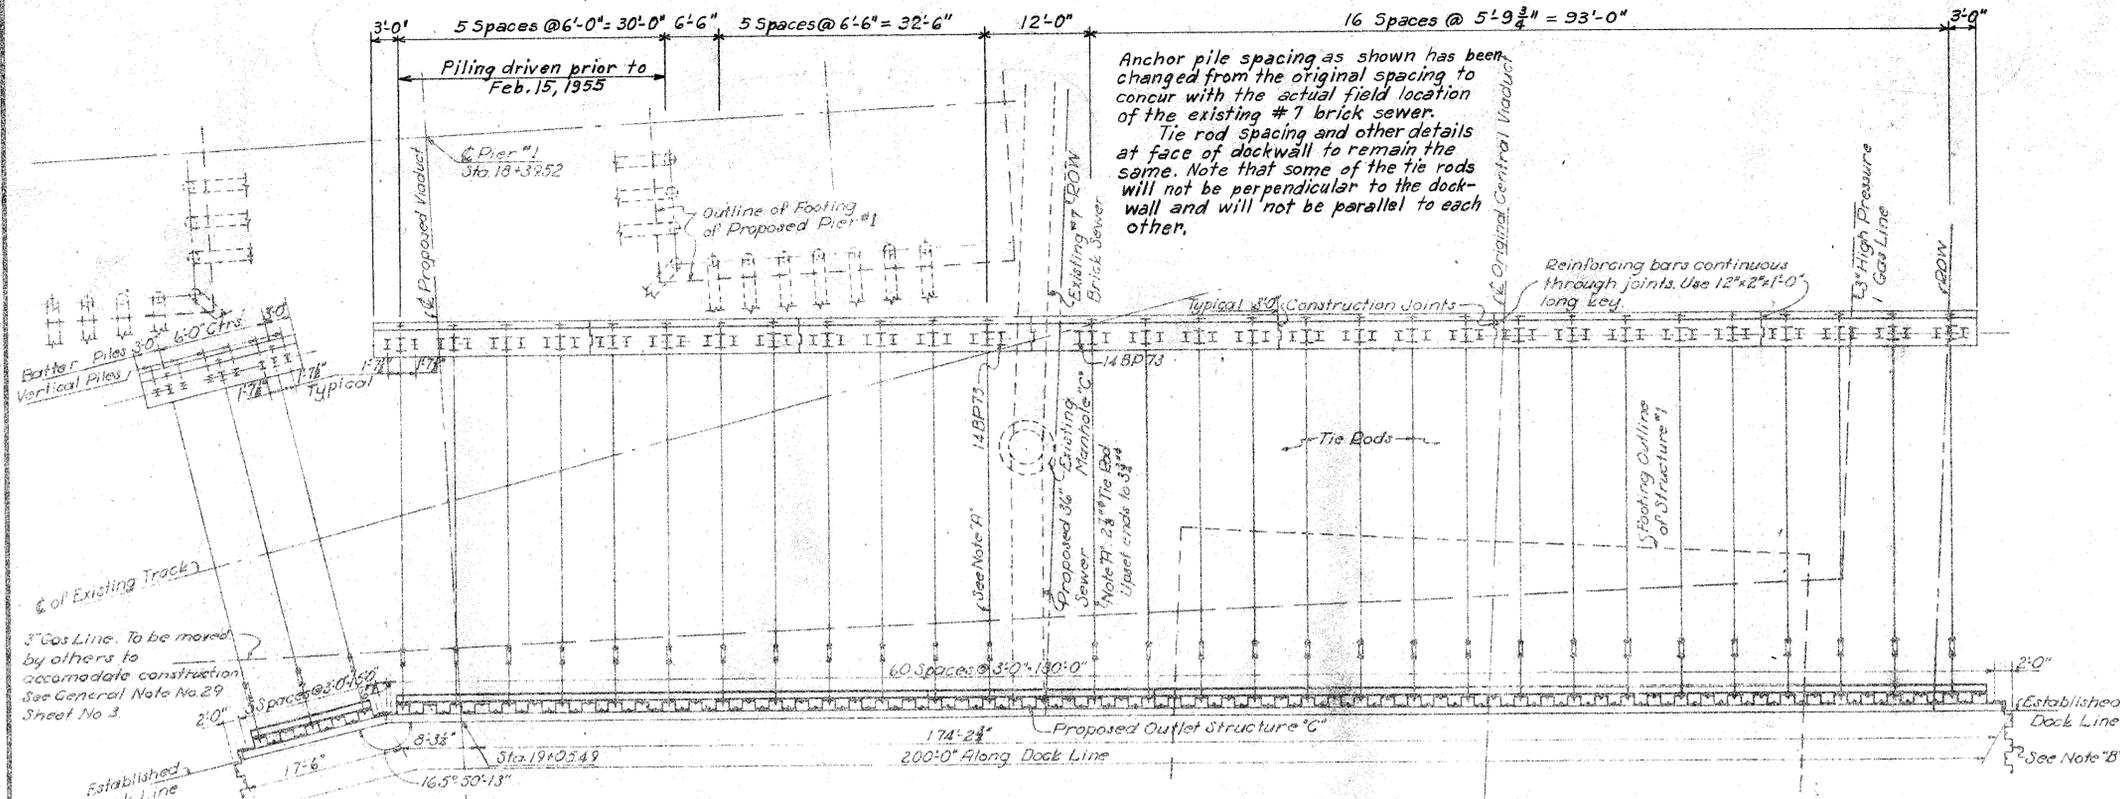 3'-0" 5 Spaces @ 6'-0" = 30'-0" 6'-6" 5 Spaces @ 6'-6" = 32'-6" 12'-0" 16 Spaces @ 5'-9 3/4" = 93'-0" 3'-0"
Piling driven prior to
Feb. 15, 1955
Anchor pile spacing as shown has been
changed from the original spacing to
concur with the actual field location
of the existing # 7 brick sewer.
Tie rod spacing and other details
at face of dockwall to remain the
same. Note that some of the tie rods
will not be perpendicular to the dock-
wall and will not be parallel to each
other.
℄ Pier #1
Sta. 18+39.52
℄ Proposed Viaduct
Outline of Footing
of Proposed Pier #1
Existing #7
Brick Sewer
ROW
℄ Original Central Viaduct
3" High Pressure
Gas Line
ROW
Reinforcing bars continuous
through joints. Use 12"x2"x1'-0"
long key.
Typical 3'-0" Construction Joints
Batter Piles 3'-0" 6'-0" Ctrs. 3'-0"
Vertical Piles
1'-7½" 1'-7½"
Typical
1'-7½" 1'-7½"
14 BP 73
14 BP 73
Existing
Manhole "C"
Tie Rods
Footing Outline
of Structure #1
(See Note "A"
Proposed 36"
Sewer
Note "A" Tie Rod
Upset ends to
℄ of Existing Track
3" Gas Line. To be moved
by others to
accomodate construction
See General Note No. 29
Sheet No 3.
5 Spaces @ 3'-0"=15'-0"
60 Spaces @ 3'-0"=180'-0"
2'-0"
2'-0"
Established
Dock Line
8'-3½"
174'-2¾"
Proposed Outlet Structure "C"
Sta. 19+05.49
200'-0" Along Dock Line
See Note "B"
17'-6"
165°-50'-13"
Established
Line